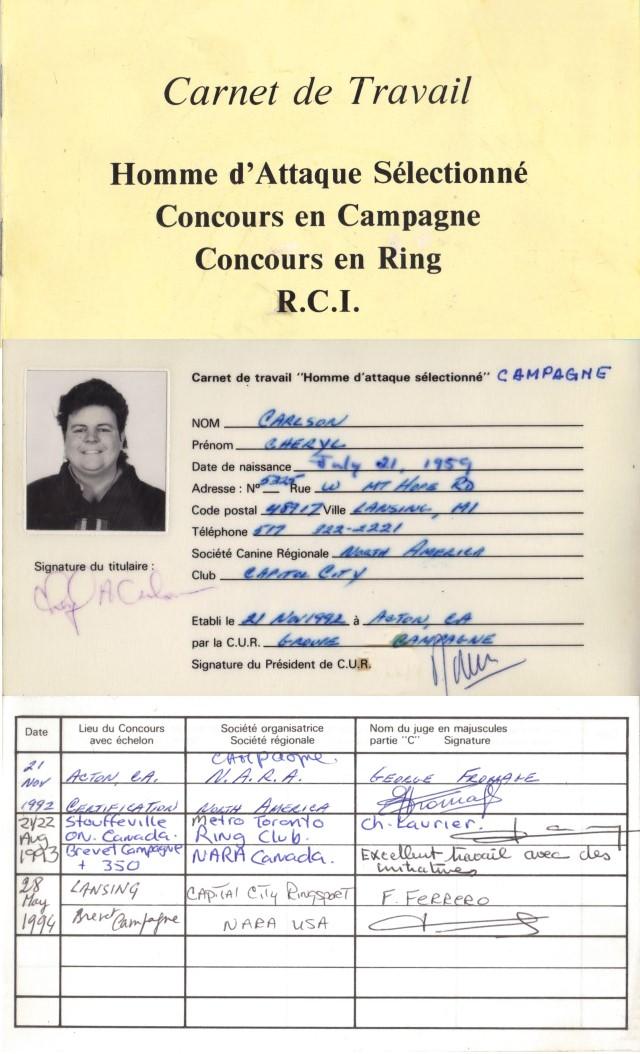 Carnet de Travail
Homme d'Attaque Sélectionné
Concours en Campagne
Concours en Ring
R.C.I.
Carnet de travail "Homme d'attaque sélectionné" CAMPAGNE
NOM CARLSON
Prénom CHERYL
Date de naissance July 21, 1959
Adresse : N° 5325 Rue W MT HOPE RD
Code postal 48917 Ville LANSING, MI
Téléphone 517 322-2221
Société Canine Régionale NORTH AMERICA
Club CAPITOL CITY
Signature du titulaire :
Etabli le 21 NOV 1992 à ACTON, CA
par la C.U.R. GROUPE CAMPAGNE
Signature du Président de C.U.R.
Date Lieu du Concours avec échelon Société organisatrice Société régionale Nom du juge en majuscules partie "C" Signature
21 NOV 1992 ACTON, CA. CERTIFICATION CAMPAGNE. N.A.R.A. NORTH AMERICA GEORGE
21/22 Aug 1993 Stouffeville ON. Canada. Brevet Campagne + 350 Metro Toronto Ring Club. NARA Canada. Ch. Laurier. Excellent travail avec des initiatives
28 May 1994 LANSING Brevet Campagne CAPITAL CITY RINGSPORT NARA USA F. FERRERO